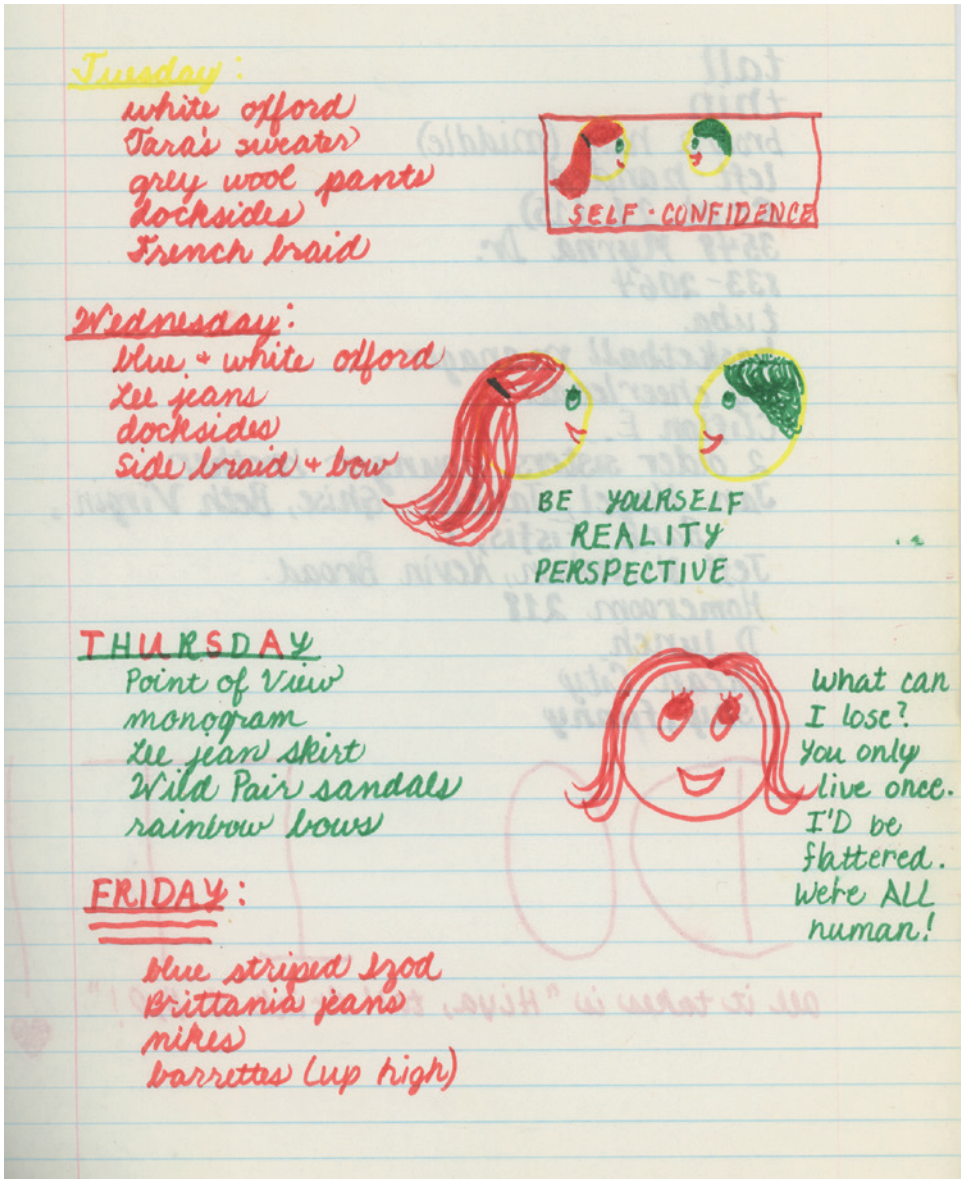 Tuesday:
white oxford
Tara's sweater
grey wool pants
docksides
French braid
SELF-CONFIDENCE
Wednesday:
blue + white oxford
Lee jeans
docksides
side braid + bow
BE YOURSELF
REALITY
PERSPECTIVE
THURSDAY
Point of View
monogram
Lee jean skirt
Wild Pair sandals
rainbow bows
What can
I lose?
You only
live once.
I'D be
flattered.
We're ALL
human!
FRIDAY:
blue striped Izod
Brittania jeans
nikes
barrettes (up high)